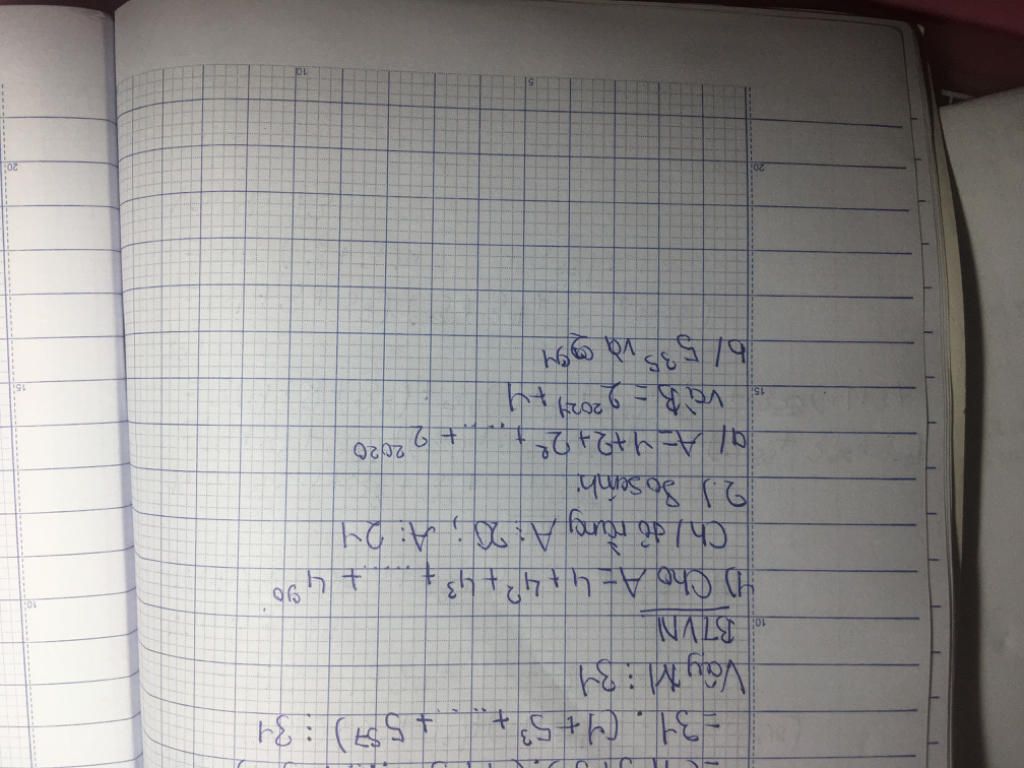 = 31 . (1 + 5³ + ... + 5⁵⁷) ⋮ 31
Vậy M ⋮ 31
BTVN
1) Cho A = 4 + 4² + 4³ + ...... + 4⁹⁰
Ch/ tỏ rằng A ⋮ 20 ; A ⋮ 21
2) So sánh:
a) A = 1 + 2 + 2² + ... + 2²⁰²⁰
và B = 2²⁰²¹ + 1
b/ 5³⁵ và 2⁹¹
10
15
20
5
10
10
15
20